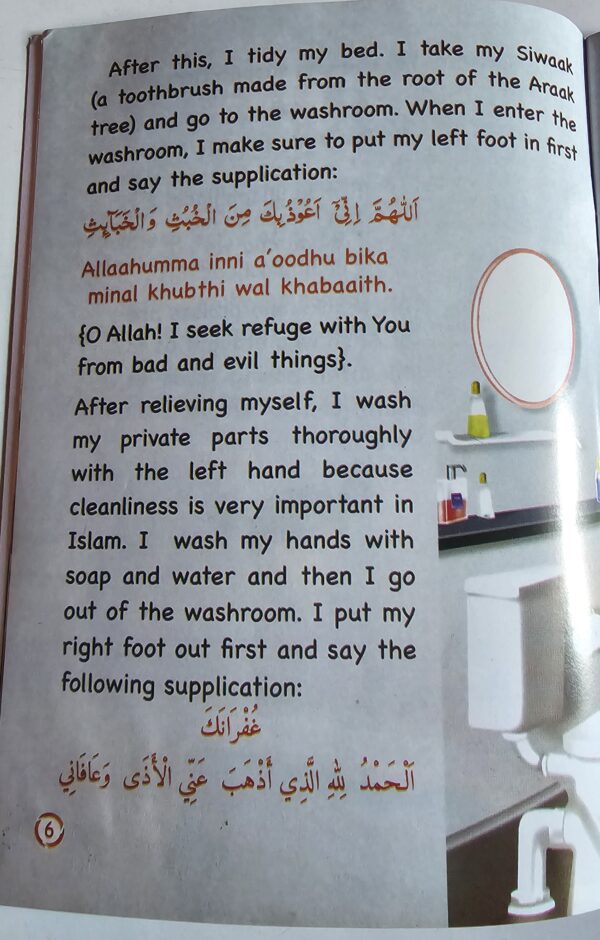 After this, I tidy my bed. I take my Siwaak
(a toothbrush made from the root of the Araak
tree) and go to the washroom. When I enter the
washroom, I make sure to put my left foot in first
and say the supplication:
اَللّٰهُمَّ اِنِّيْٓ اَعُوْذُبِكَ مِنَ الْخُبُثِ وَالْخَبَآئِثِ
Allaahumma inni a’oodhu bika
minal khubthi wal khabaaith.
{O Allah! I seek refuge with You
from bad and evil things}.
After relieving myself, I wash
my private parts thoroughly
with the left hand because
cleanliness is very important in
Islam. I wash my hands with
soap and water and then I go
out of the washroom. I put my
right foot out first and say the
following supplication:
غُفْرَانَكَ
اَلْحَمْدُ لِلّٰهِ الَّذِي أَذْهَبَ عَنِّي الْأَذَى وَعَافَانِي
6